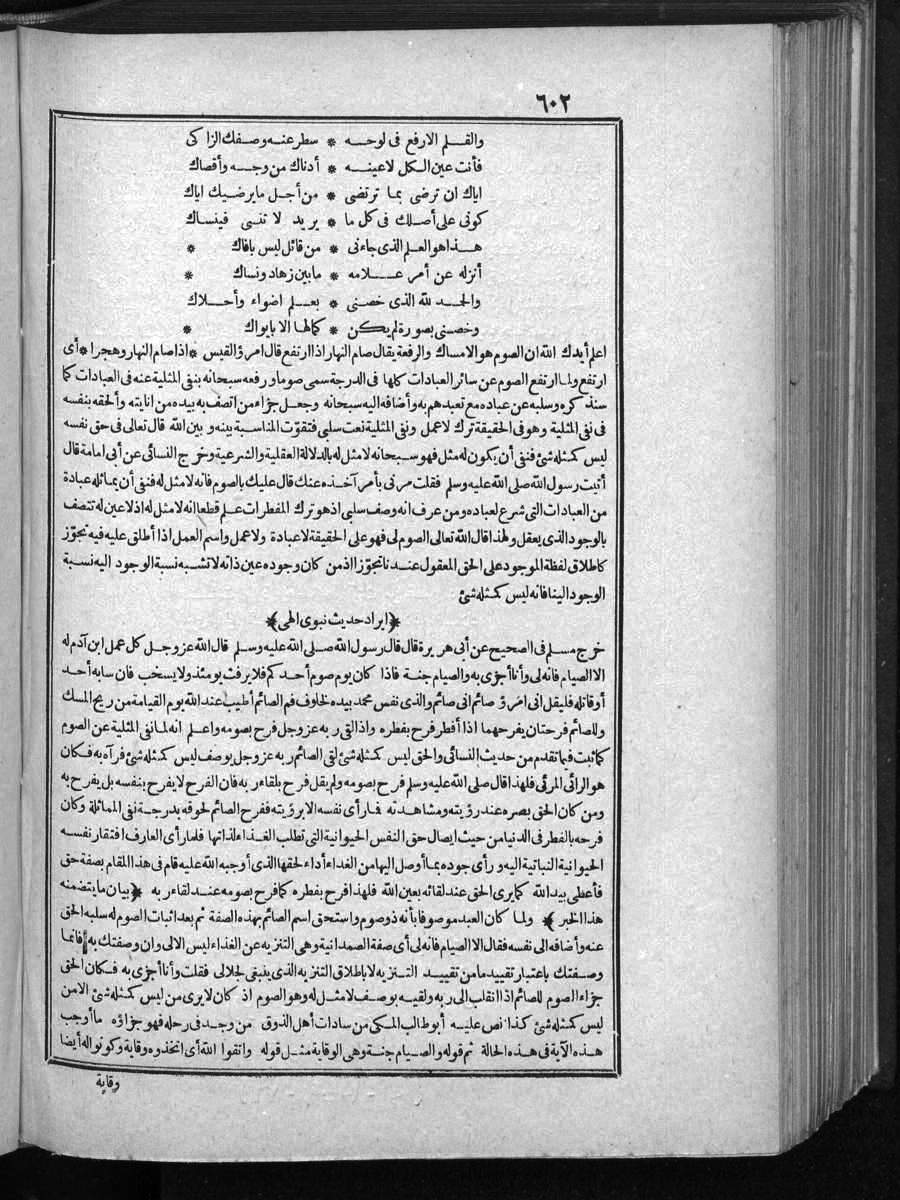 ٦٠٢
والقلم الارفع فى لوحه * سطر عنه وصفك الزاكى
فأنت عين الكل لا عينه * أدناك من وجه وأقصاك
اياك ان ترضى بما ترتضى * من أجل ما يرضيك اياك
كونى على أصلك فى كل ما * يريد لا تنسى فينساك
هذا هو العلم الذى جاءنى * من قائل ليس بافاك *
أنزله عن أمر علامه * مابين زهاد ونساك *
والحمد لله الذى خصنى * بعلم اضواء وأحلاك
وخصنى بصورة لم يكن * كمالها الا بايواك *
اعلم أيدك الله ان الصوم هو الامساك والرفعة يقال صام النهار اذا ارتفع قال امرؤ القيس * اذا صام النهار وهجرا * أى
ارتفع ولما ارتفع الصوم عن سائر العبادات كلها فى الدرجة سمى صوما ورفعه سبحانه بنفى المثلية عنه فى العبادات كما
سنذكره وسلبه عن عباده مع تعبدهم به وأضافه اليه سبحانه وجعل جزاء من اتصف به بيده من انايته وألحقه بنفسه
فى نفى المثلية وهو فى الحقيقة ترك لا عمل ونفى المثلية نعت سلبى فتقوّت المناسبة بينه وبين الله قال تعالى فى حق نفسه
ليس كمثله شئ فنفى أن يكون له مثل فهو سبحانه لا مثل له بالدلالة العقلية والشرعية وخرج النسائى عن أبى امامة قال
أتيت رسول الله صلى الله عليه وسلم فقلت مرنى بأمر آخذه عنك قال عليك بالصوم فانه لا مثل له فنفى أن يماثله عبادة
من العبادات التى شرع لعباده ومن عرف انه وصف سلبى اذ هو ترك المفطرات علم قطعا انه لا مثل له اذ لا عين له تتصف
بالوجود الذى يعقل ولهذا قال الله تعالى الصوم لى فهو على الحقيقة لا عبادة ولا عمل واسم العمل اذا أطلق عليه فيه تجوّز
كاطلاق لفظة الموجود على الحق المعقول عندنا تجوّزا اذ من كان وجوده عين ذاته لا تشبه نسبة الوجود اليه نسبة
الوجود الينا فانه ليس كمثله شئ
﴿ايراد حديث نبوى الهى﴾
خرج مسلم فى الصحيح عن أبى هريرة قال قال رسول الله صلى الله عليه وسلم قال الله عز وجل كل عمل ابن آدم له
الا الصيام فانه لى وأنا أجزى به والصيام جنة فاذا كان يوم صوم أحدكم فلا يرفث يومئذ ولا يسخب فان سابه أحد
أو قاتله فليقل انى امرؤ صائم انى صائم والذى نفس محمد بيده لخلوف فم الصائم أطيب عند الله يوم القيامة من ريح المسك
وللصائم فرحتان يفرحهما اذا أفطر فرح بفطره واذا لقى ربه عز وجل فرح بصومه واعلم انه لما نفى المثلية عن الصوم
كما ثبت فيما تقدم من حديث النسائى والحق ليس كمثله شئ لقى الصائم ربه عز وجل بوصف ليس كمثله شئ فرآه به فكان
هو الرائى المرئى فلهذا قال صلى الله عليه وسلم فرح بصومه ولم يقل فرح بلقاء ربه فان الفرح لا يفرح بنفسه بل يفرح به
ومن كان الحق بصره عند رؤيته ومشاهدته فما رأى نفسه الا برؤيته ففرح الصائم لحوقه بدرجة نفى المماثلة وكان
فرحه بالفطر فى الدنيا من حيث ايصال حق النفس الحيوانية التى تطلب الغذاء لذاتها فلما رأى العارف افتقار نفسه
الحيوانية النباتية اليه ورأى جوده بما أوصل اليها من الغذاء أداء لحقها الذى أوجبه الله عليه قام فى هذا المقام بصفة حق
فأعطى بيد الله كما يرى الحق عند لقائه بعين الله فلهذا فرح بفطره كما فرح بصومه عند لقاء ربه ﴿بيان ما يتضمنه
هذا الخبر﴾ ولما كان العبد موصوفا بأنه ذو صوم واستحق اسم الصائم بهذه الصفة ثم بعد اثبات الصوم له سلبه الحق
عنه وأضافه الى نفسه فقال الا الصيام فانه لى أى صفة الصمدانية وهى التنزيه عن الغذاء ليس الا لى وان وصفتك به فانما
وصفتك باعتبار تقييد ما من تقييد التنزيه لا باطلاق التنزيه الذى ينبغى لجلالى فقلت وأنا أجزى به فكان الحق
جزاء الصوم للصائم اذا انقلب الى ربه ولقيه بوصف لا مثل له وهو الصوم اذ كان لا يرى من ليس كمثله شئ الا من
ليس كمثله شئ كذا نص عليه أبو طالب المكى من سادات أهل الذوق من وجد فى رحله فهو جزاؤه ما أوجب
هذه الآية فى هذه الحالة ثم قوله والصيام جنة وهى الوقاية مثل قوله واتقوا الله أى اتخذوه وقاية وكونوا له أيضا
وقاية